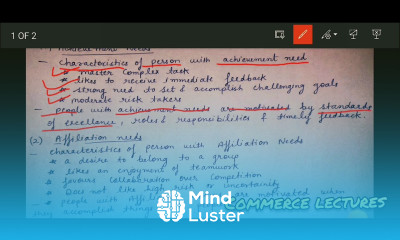 1 OF 2
Achievement Needs
- Characteristics of person with achievement need
* master complex task
* likes to receive immediate feedback
* strong need to set & accomplish challenging goals
* moderate risk takers
- people with achievement needs are motivated by standards
of excellence, roles & responsibilities & timely feedback.
(2) Affiliation needs
- characteristics of person with Affiliation Needs
* a desire to belong to a group
* likes an enjoyment of teamwork
* favours collaboration over competition
* Does not like high risk or uncertainty
* people with Affiliation are motivated when
Mind
Luster
COMMERCE LECTURES